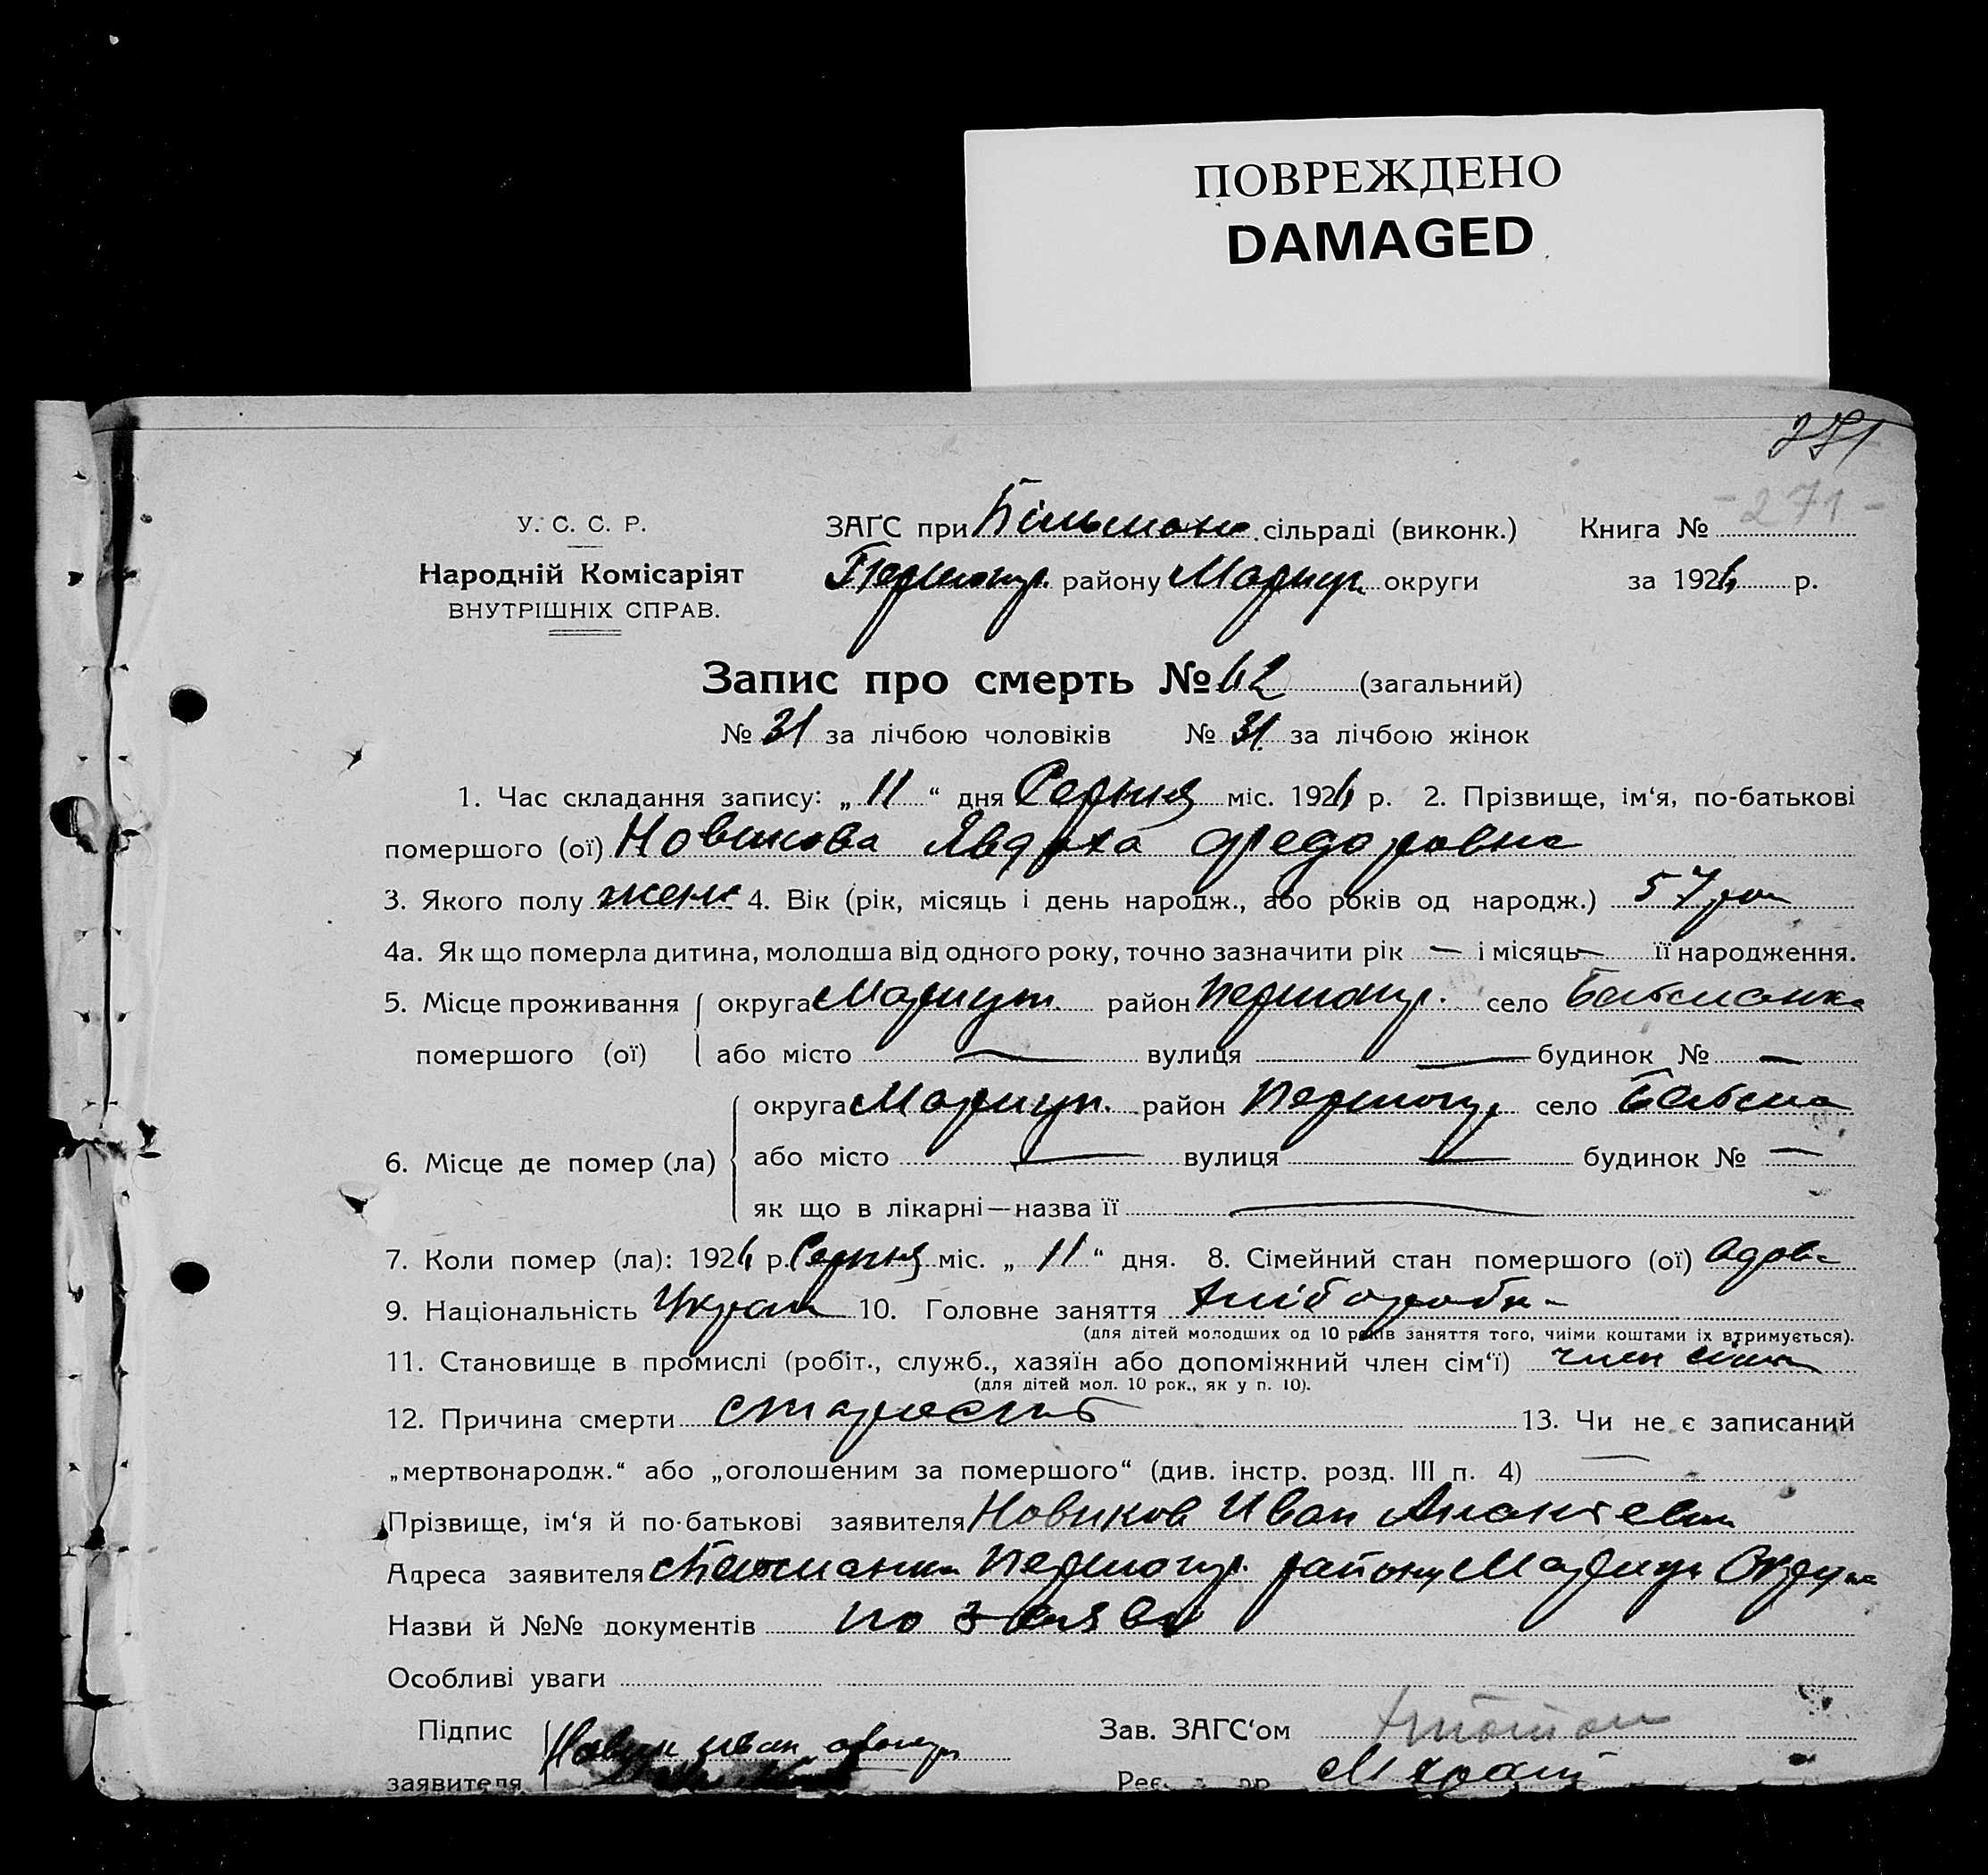 ПОВРЕЖДЕНО
DAMAGED
271
- 271 -
У. С. С. Р.
ЗАҐС при сільраді (виконк.) Книга №
Народній Комісаріят
району Мариуп. округи за 1926 р.
ВНУТРІШНІХ СПРАВ.
Запис про смерть № 62 (загальний)
№ 31 за лічбою чоловіків № 31 за лічбою жінок
1. Час складання запису: „ 11 “ дня Серпня міс. 1926 р. 2. Прізвище, ім‘я, по-батькові
помершого (ої) Новикова Явдоха Федоровна
3. Якого полу жено 4. Вік (рік, місяць і день народж., або років од народж.) 57 рок
4а. Як що померла дитина, молодша від одного року, точно зазначити рік — і місяць — її народження.
5. Місце проживання округа Мариуп. район село
помершого (ої) або місто — вулиця — будинок № —
округа Мариуп. район село
6. Місце де помер (ла) або місто — вулиця — будинок № —
як що в лікарні—назва її —
7. Коли помер (ла): 1926 р. Серпня міс. „ 11 “ дня. 8. Сімейний стан помершого (ої) вдова
9. Національність Украін 10. Головне заняття хліборобн
(для дітей молодших од 10 років заняття того, чиїми коштами їх втримується).
11. Становище в промислі (робіт., служб., хазяїн або допоміжний член сім‘ї) член сімі
(для дітей мол. 10 рок., як у п. 10).
12. Причина смерти старость 13. Чи не є записаний
„мертвонародж.“ або „оголошеним за помершого“ (див. інстр. розд. III п. 4) —
Прізвище, ім‘я й по-батькові заявителя Новиков Иван
Адреса заявителя району Мариуп Округи
Назви й №№ документів по заяви
Особливі уваги
Підпис Новик иван Зав. ЗАҐС‘ом
заявителя